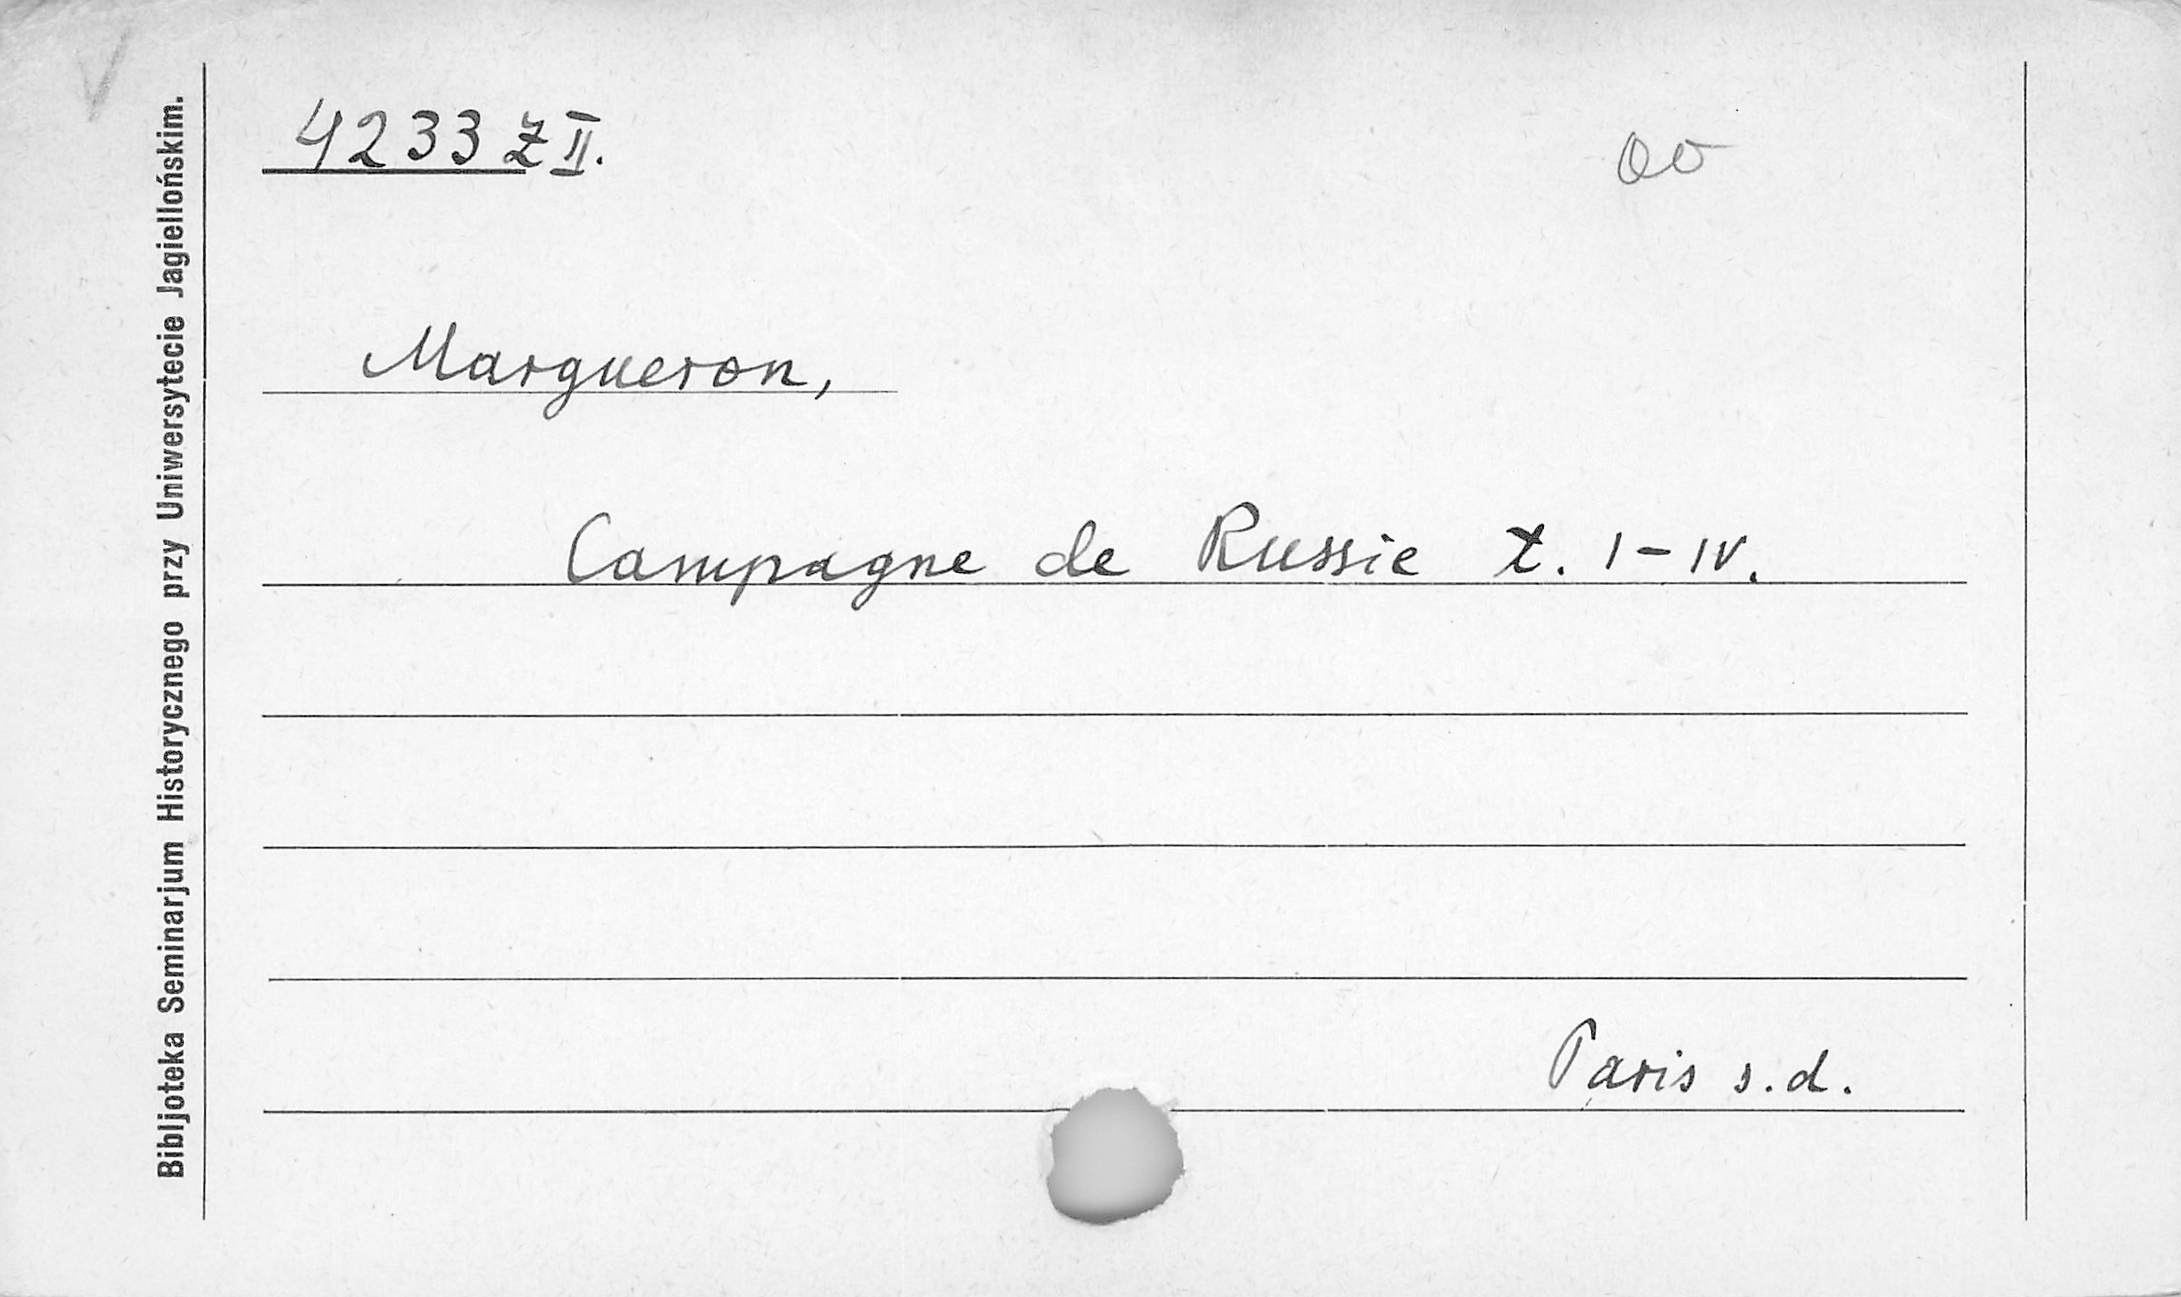 4233 Z II.
Margueron,
Campagne de Russie t. I-IV.
Paris s.d.
Bibljoteka Seminarjum Historycznego przy Uniwersytecie Jagiellońskim.